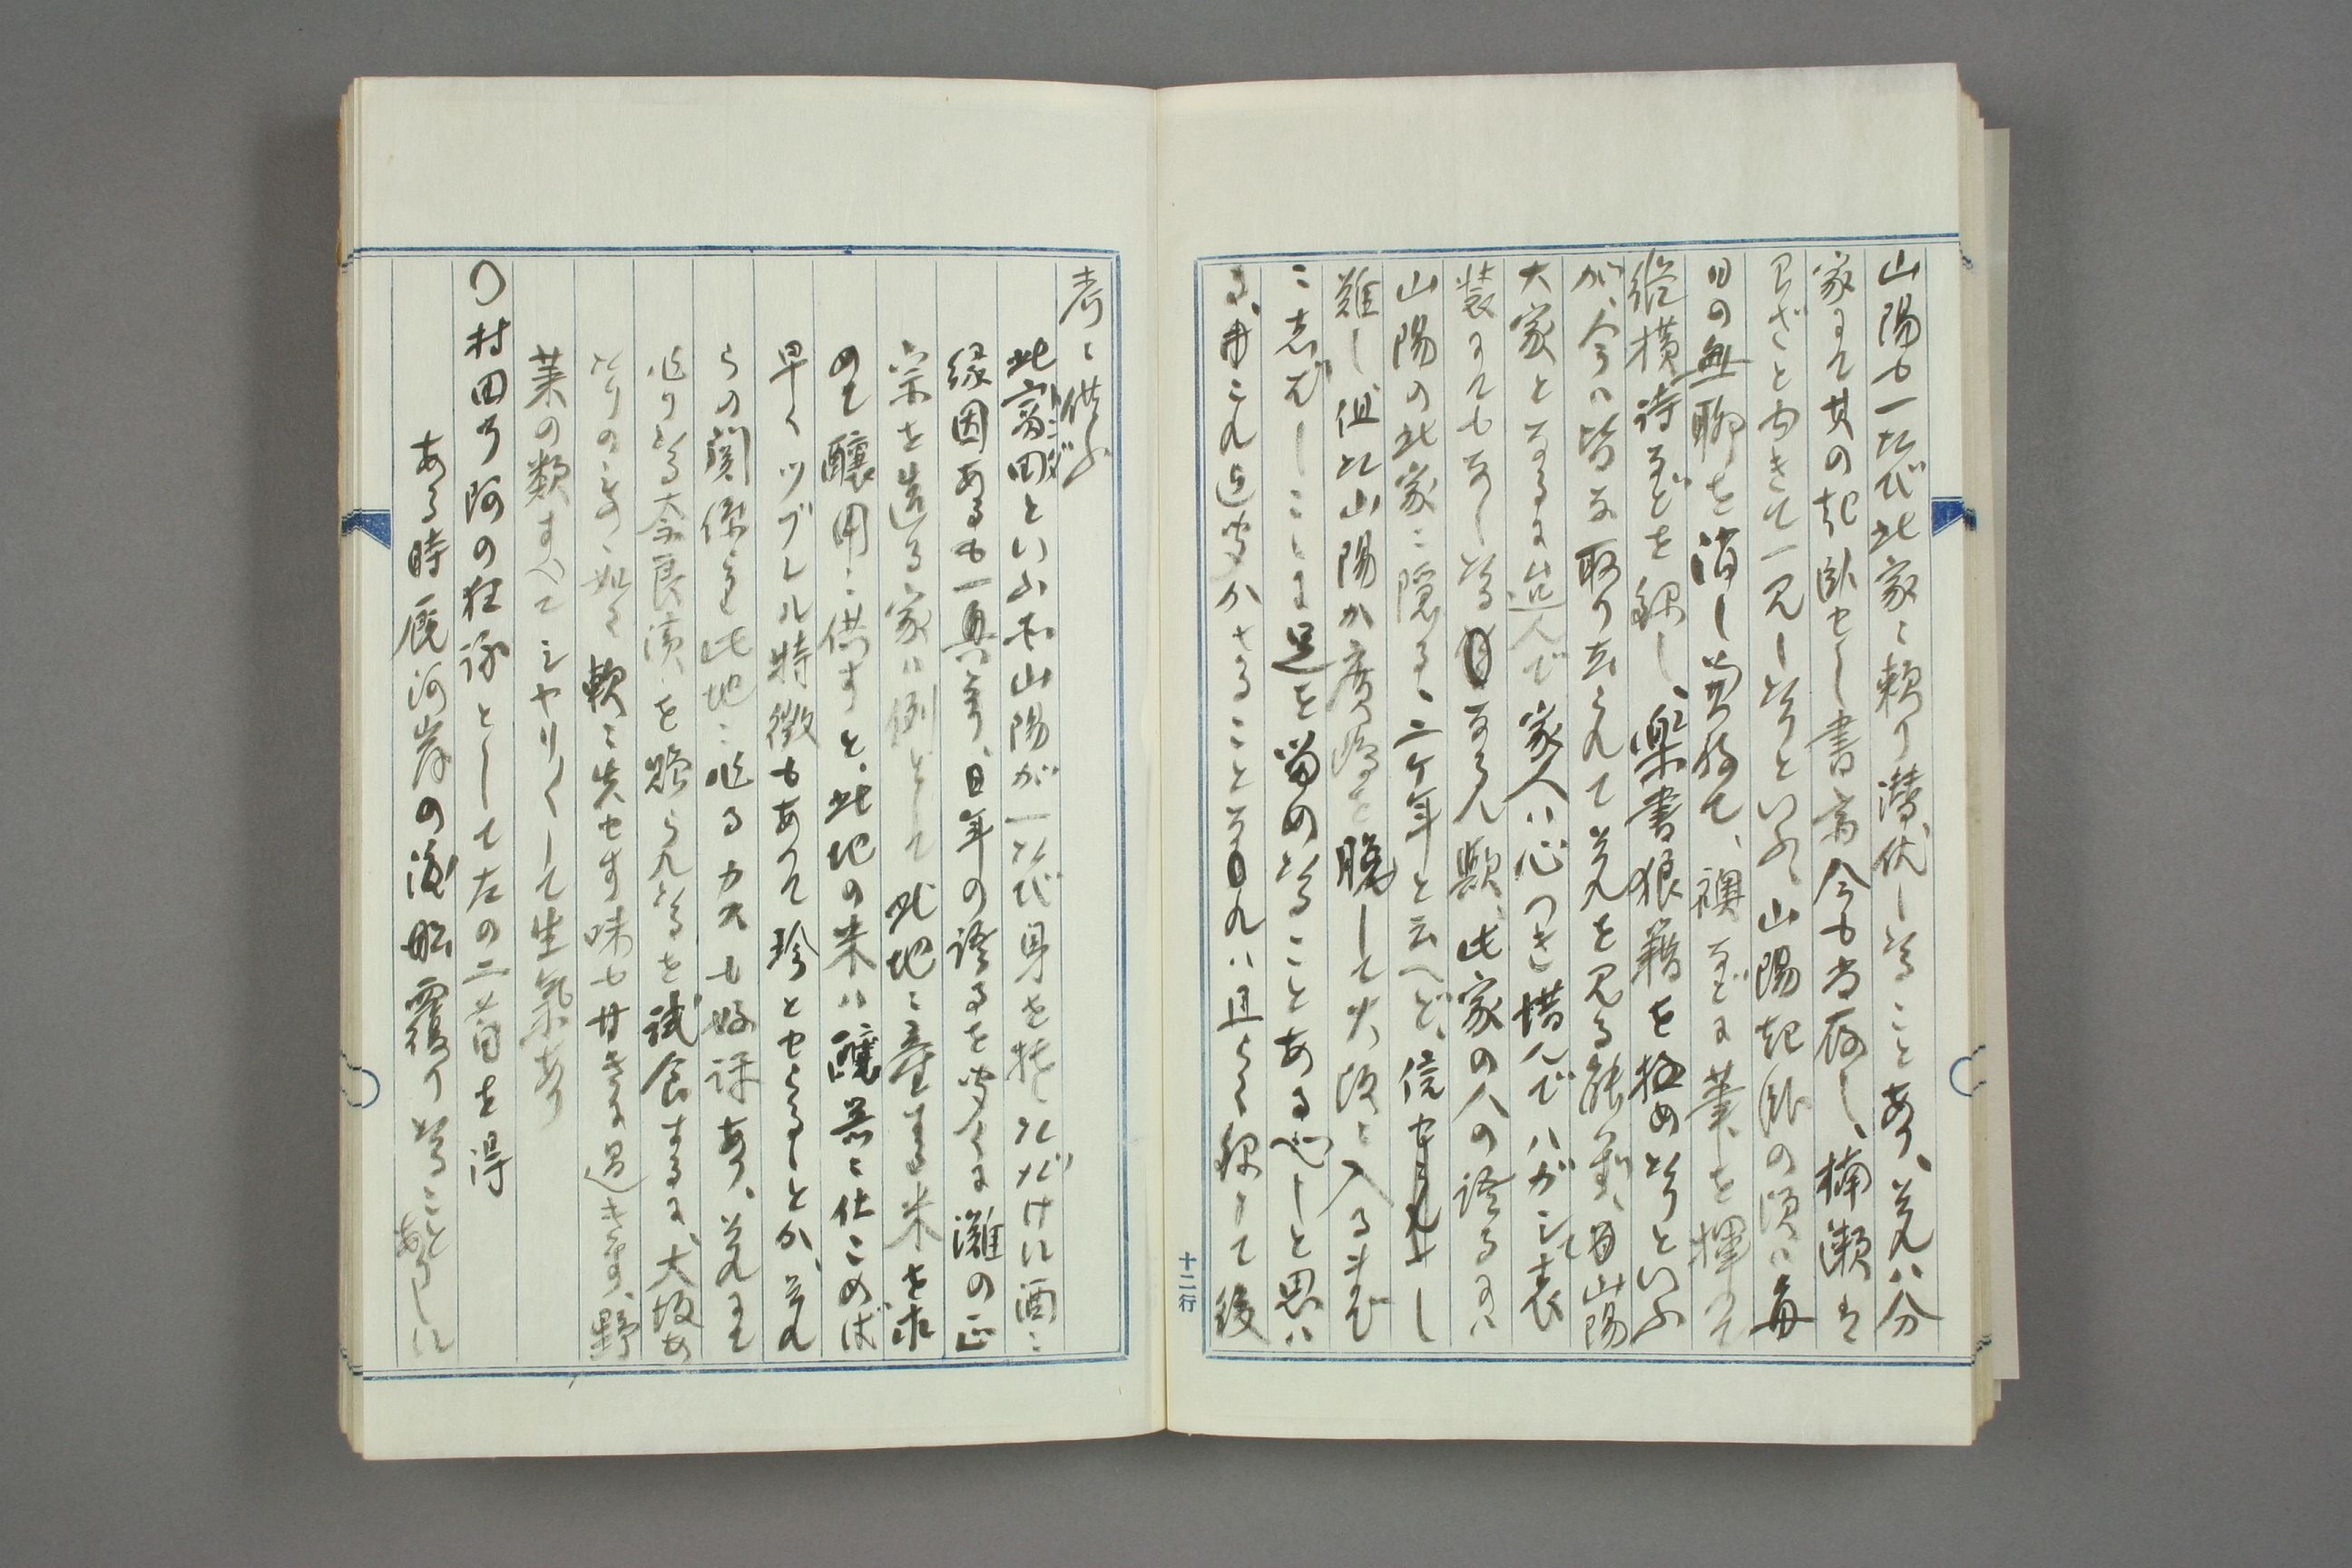 山陽も一たび此家に頼り潜伏したることあり、それハ分
家にて其の起臥せし書斎今も尚存し、楠瀬は
わざと由きて一見したりといふ、山陽起臥の頃ハ毎
日の無聊を消し兼ねて、襖などに筆を揮つて
縦横詩などを録し、楽書狼藉を極めたりといふ
が、今ハ皆な取り去られてそれを見る能ハず、山陽
大家となるに及んで家人ハ心つき惜んでハがして表
装にてもなしたるなるん歟、此家の人の語るにハ
山陽の此家に隠る、二ケ年と云へど、信せ難し
難し但た山陽か廣島を脱して大阪に入るまで
に志ばしこゝに足を留めたることある可しと思ハ
る、由これ迄聞かさることなれハ且らく録して後
考に供ふ
此富田といふ所山陽が一たび身を托したゞけに酒に
縁因あるも一興なり、日年の語るを聞くに灘の正
宗を造る家ハ例として此地に産する米を求
めて醸用に供すと、此地の米ハ醸器に仕こめば
早くツブレル特徴もありて珍とせらるゝとか、それ
らの関係にや此地に造る力スも好評あり、それにて
造りたる奈良漬を贈られたるを試食するに、大坂あ
たりのものゝ如く軟に失せす味も甘きに過きす、野
菜の類すべてシヤリ〱して生気あり
〇村田了阿の狂詠として左の二首を得
ある時厩河岸の渡船覆りたることありしに
十二行